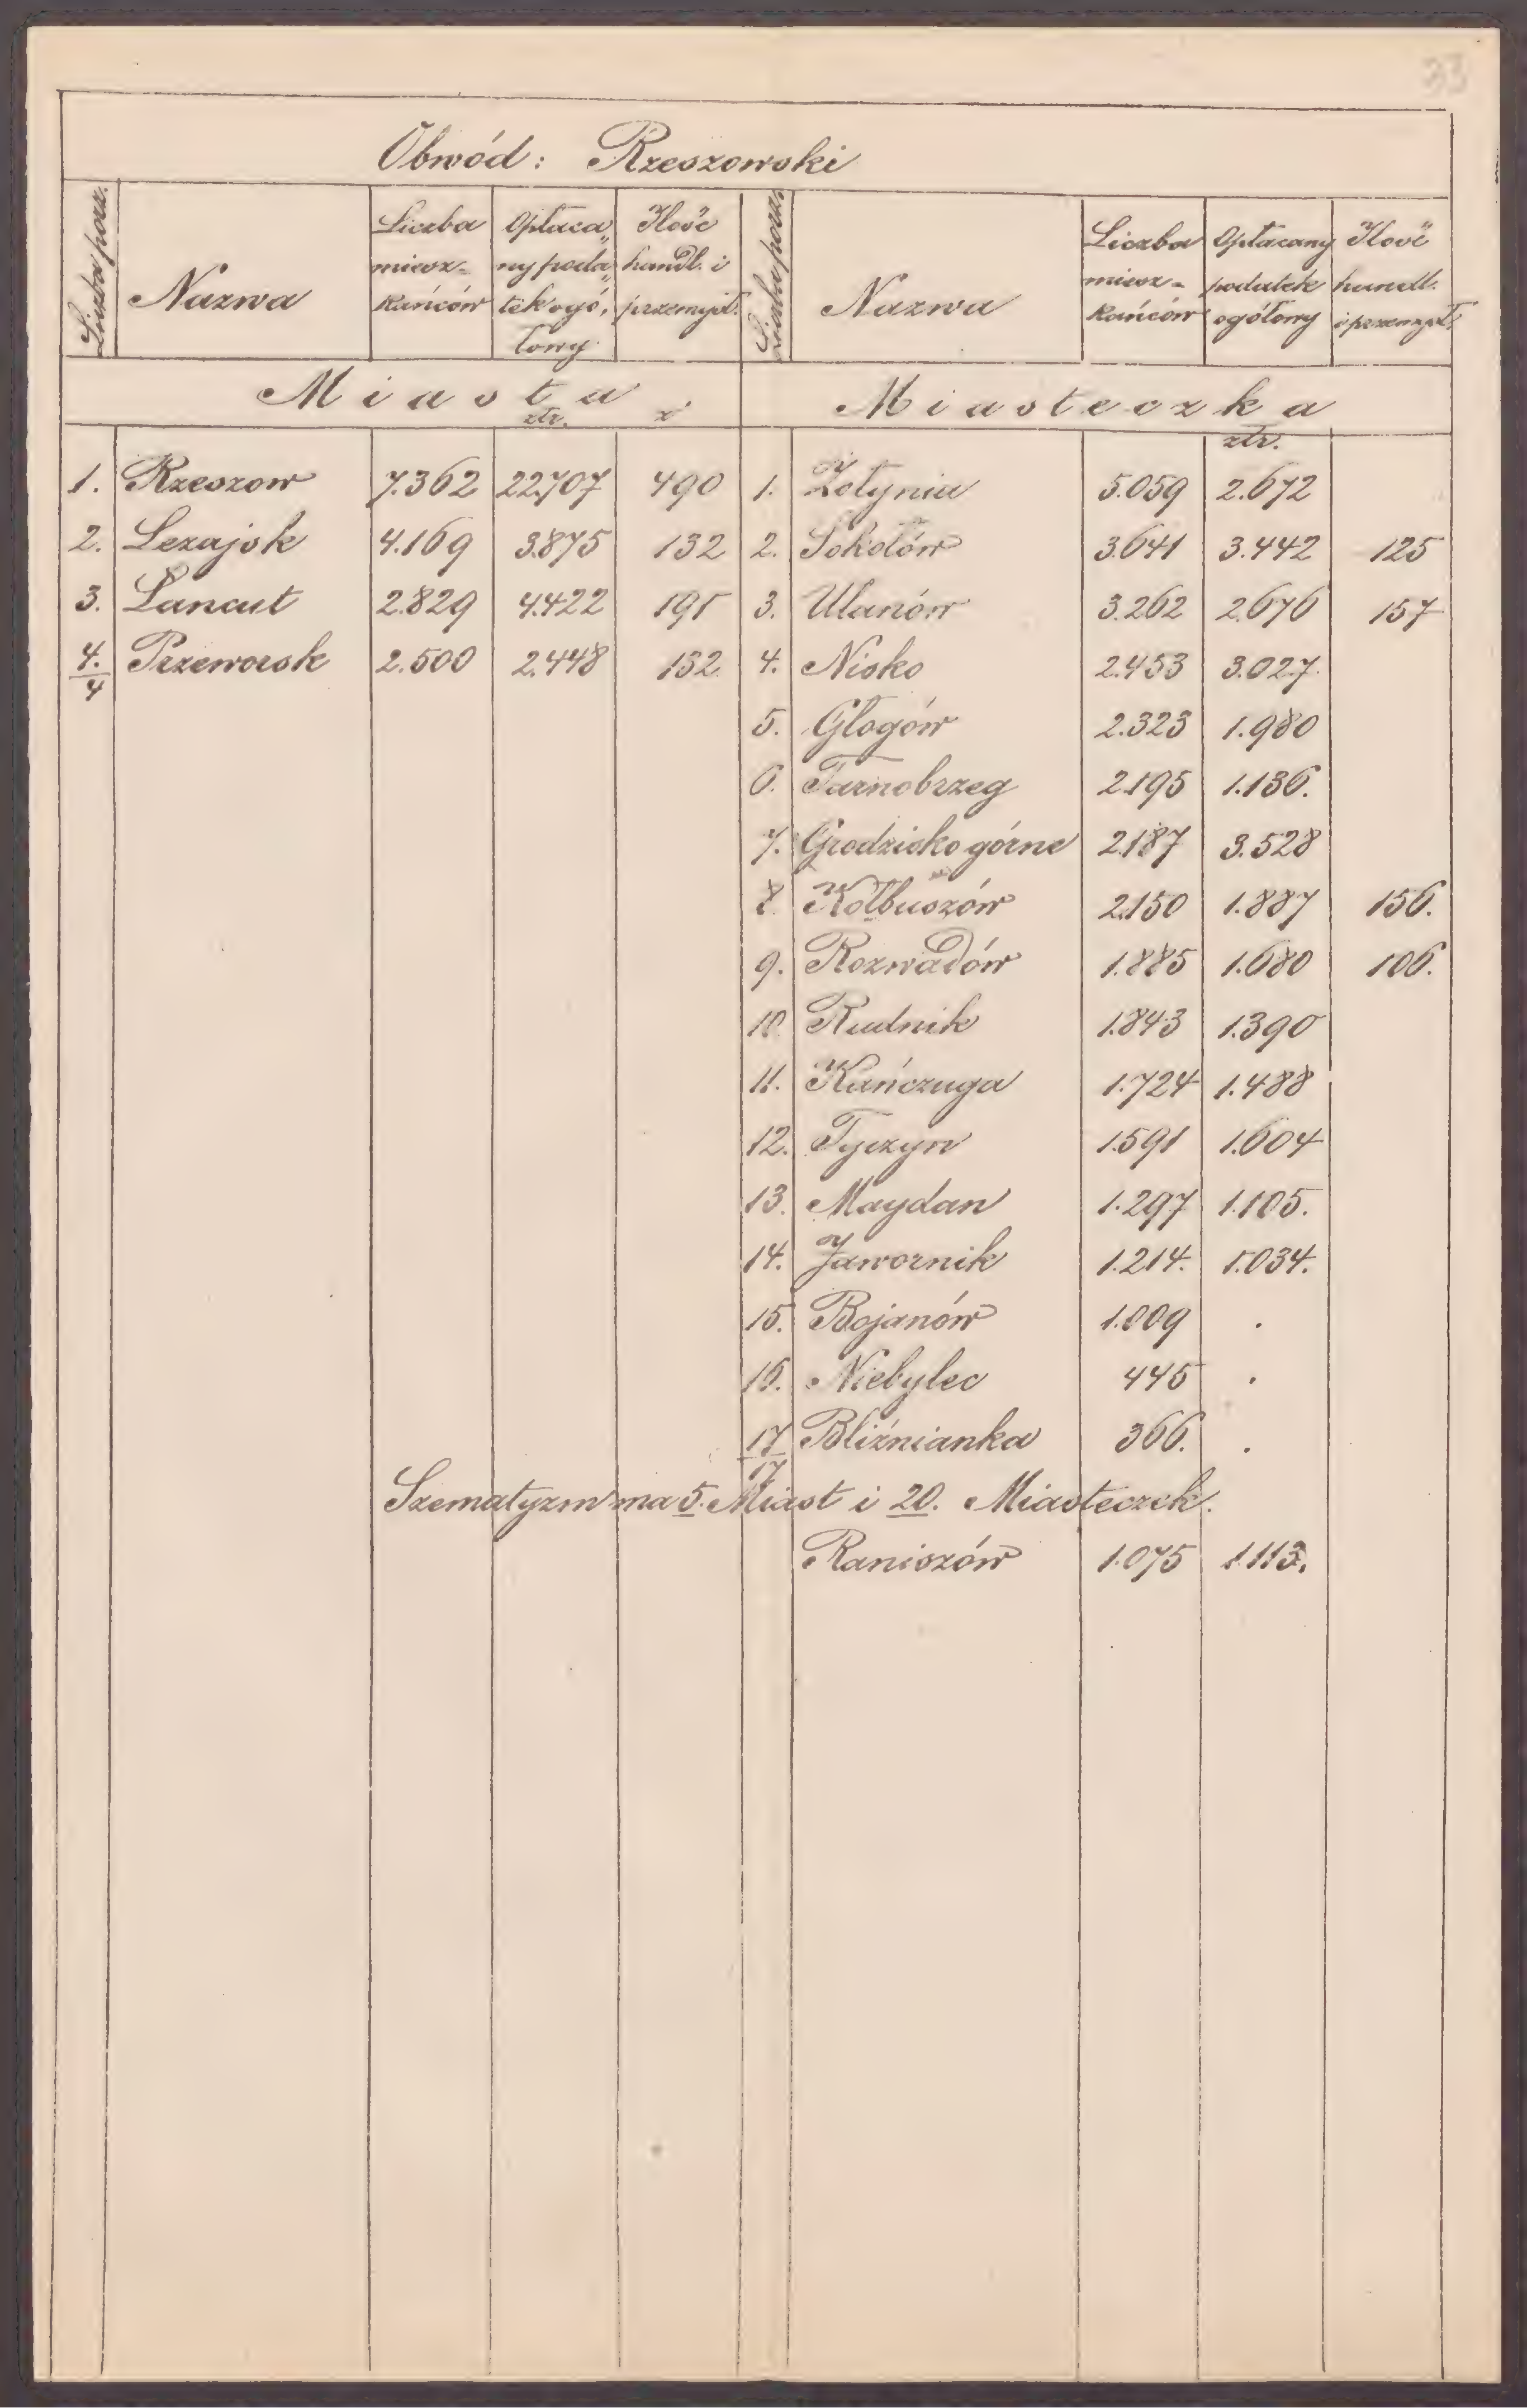 33
Obwód: Rzeszowski
Liczba porz. Nazwa Liczba miesz- kańców Opłaca„ ny poda„ tek ogó, łowy Ilość handl. i przemysł.
Liczba porz. Nazwa Liczba miesz- kańców Opłacany podatek ogółowy Ilość handl. i przemysł.
Miasta
złr.
Miasteczka
złr.
1. Rzeszow 7.362 22.707 490
2. Lezajsk 4.169 3.875 132
3. Łancut 2.829 4.422 191
4. Przeworsk 2.500 2.448 132
4
1. Żołynia 5.059 2.672
2. Sokołów 3.641 3.442 125
3. Ulanów 3.262 2.676 157
4. Nisko 2.453 3.027.
5. Głogów 2.323 1.980
6. Tarnobrzeg 2.195 1.136.
7. Grodzisko górne 2.187 3.528
8. Kolbuszów 2.150 1.887 156.
9. Rozwadów 1.885 1.680 106.
10 Rudnik 1.843 1.390
11. Kańczuga 1.724 1.488
12. Tyczyn 1.591 1.604
13. Maydan 1.297 1.105.
14. Jawornik 1.214. 1.034.
15. Bojanów 1.009 .
16. Niebylec 445 .
17 Bliźnianka 366. .
17
Szematyzm ma 5. Miast i 20. Miasteczek.
Raniszów 1.075 1.113.